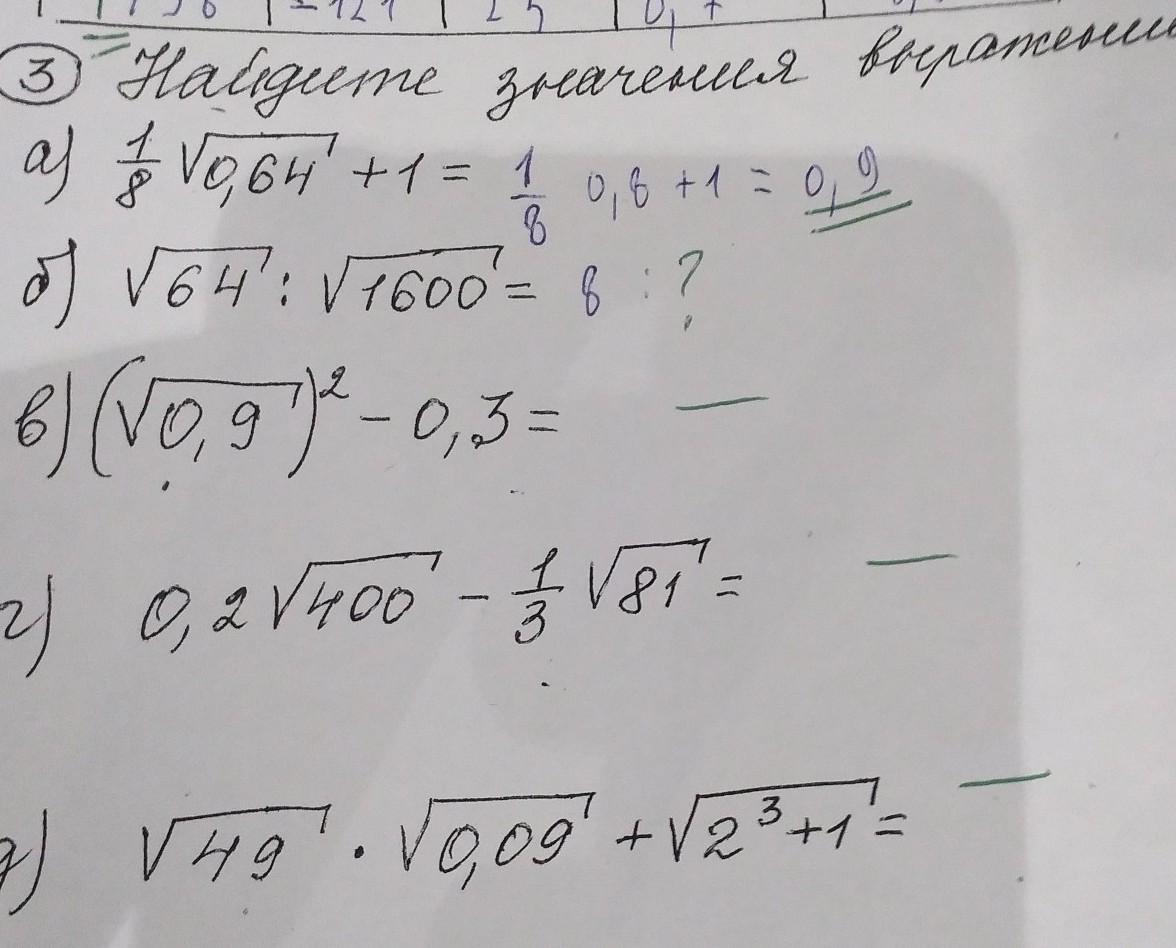 ③ Найдите значения выражени
а) 1/8 √0,64 + 1 = 1/8 0,8 + 1 = 0,9
б) √64 : √1600 = 8 : ?
в) (√0,9)² - 0,3 =
г) 0,2√400 - 1/3 √81 =
д) √49 · √0,09 + √2³+1 =